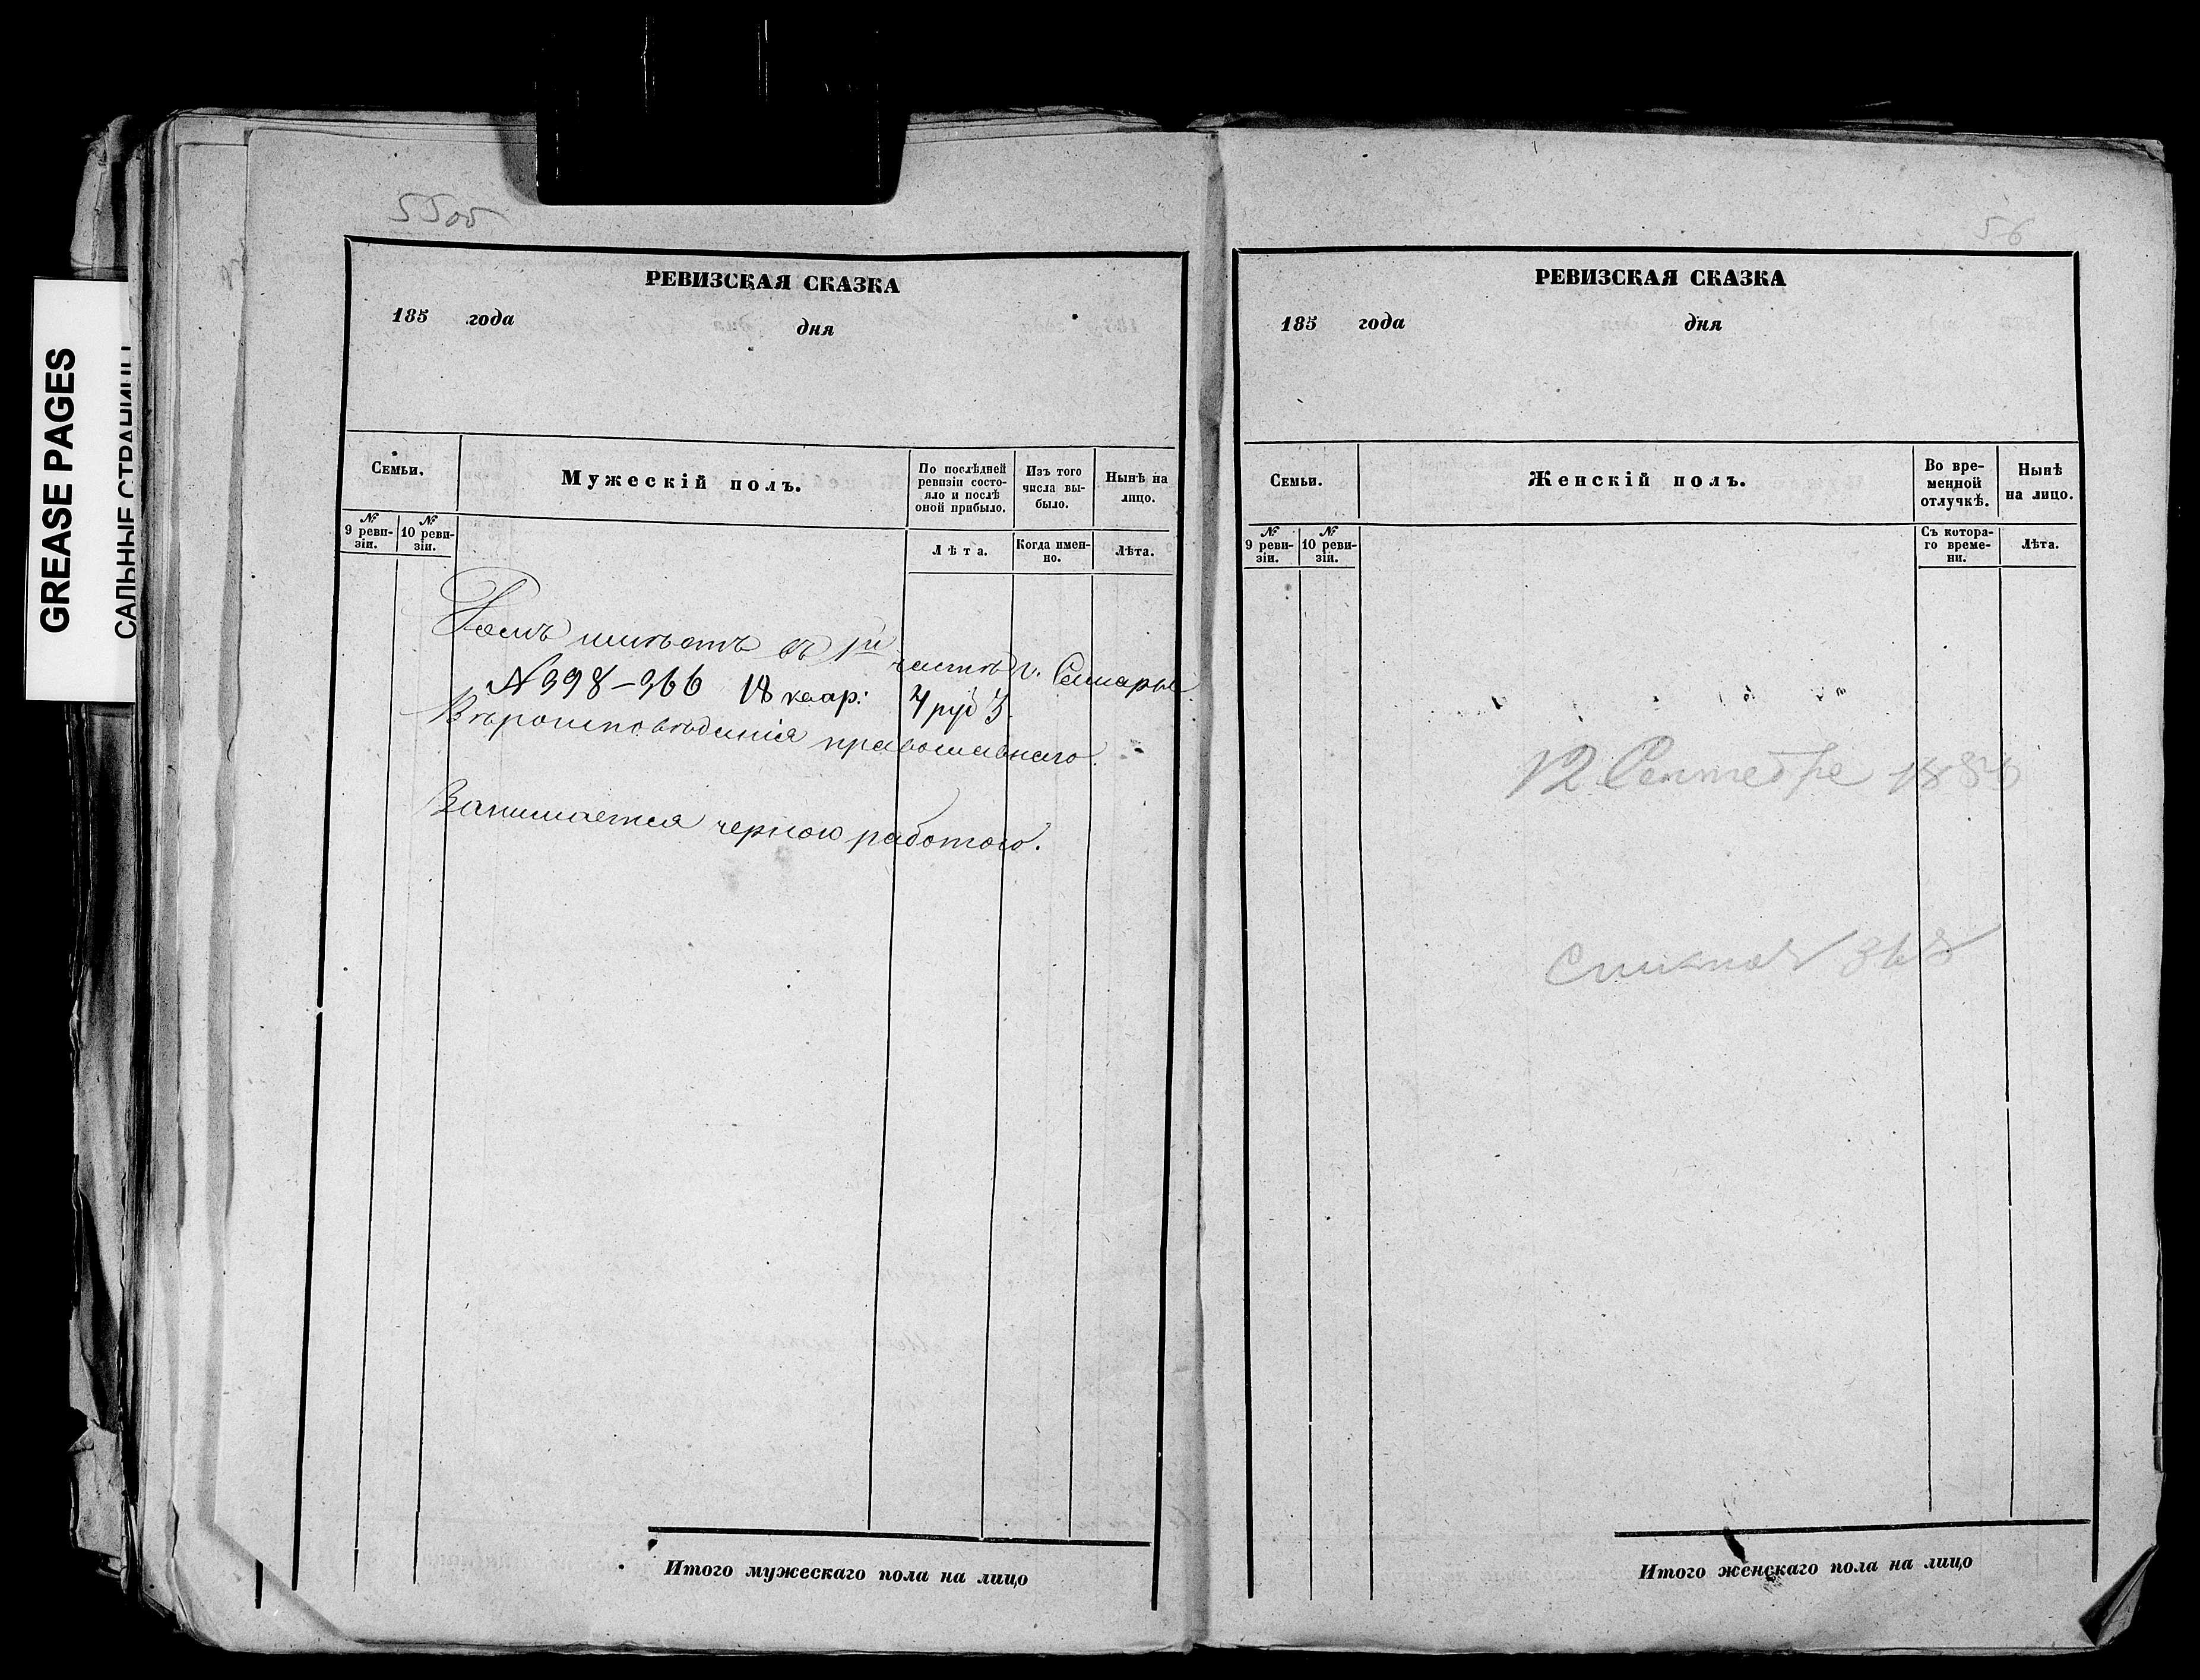 GREASE PAGES
САЛЬНЫЕ СТРАНИЦЫ
55об
РЕВИЗСКАЯ СКАЗКА
185 года дня
Семьи.
Мужескій полъ.
По послѣдней
ревизіи состо-
яло и послѣ
оной прибыло.
Изъ того
числа вы-
было.
Нынѣ на
лицо.
№
9 реви-
зіи.
№
10 реви-
зіи.
Лѣта.
Когда имен-
но.
Лѣта.
Домъ имѣетъ въ 1й части г. Самары
№ 398-366 18 квар: 4 руб
Вѣроисповѣданія православнаго.
Занимается черною работою.
Итого мужескаго пола на лицо
56
РЕВИЗСКАЯ СКАЗКА
185 года дня
Семьи.
Женскій полъ.
Во вре-
менной
отлучкѣ.
Нынѣ
на лицо.
№
9 реви-
зіи.
№
10 реви-
зіи.
Съ котора-
го време-
ни.
Лѣта.
12 Сентебре
Итого женскаго пола на лицо